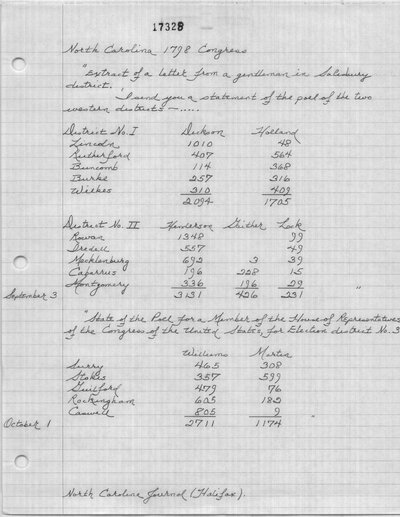 17328
North Carolina 1798 Congress
"Extract of a letter from a gentleman in Salisbury
district.,
I send you a statement of the poel of the two
western districts - .....
District No. I Dickson Holland
Lincoln 1010 48
Rutherford 407 564
Buncomb 114 368
Burke 257 316
Wilkes 310 409
2094 1705
District No. II Henderson Guither Lock
Rowan 1348 99
Iredell 557 49
Mecklenburg 692 3 39
Cabarrus 196 228 15
Montgomery 336 196 29
September 3 3131 426 231 "
"State of the Poel for a Member of the House of Representatives
of the Congress of the United States, for Election district No. 3
Williams Martin
Surry 465 308
Stokes 357 599
Guilford 479 76
Rockingham 605 182
Caswell 805 9 "
October 1 2711 1174
North Carolina Journal (Halifax).